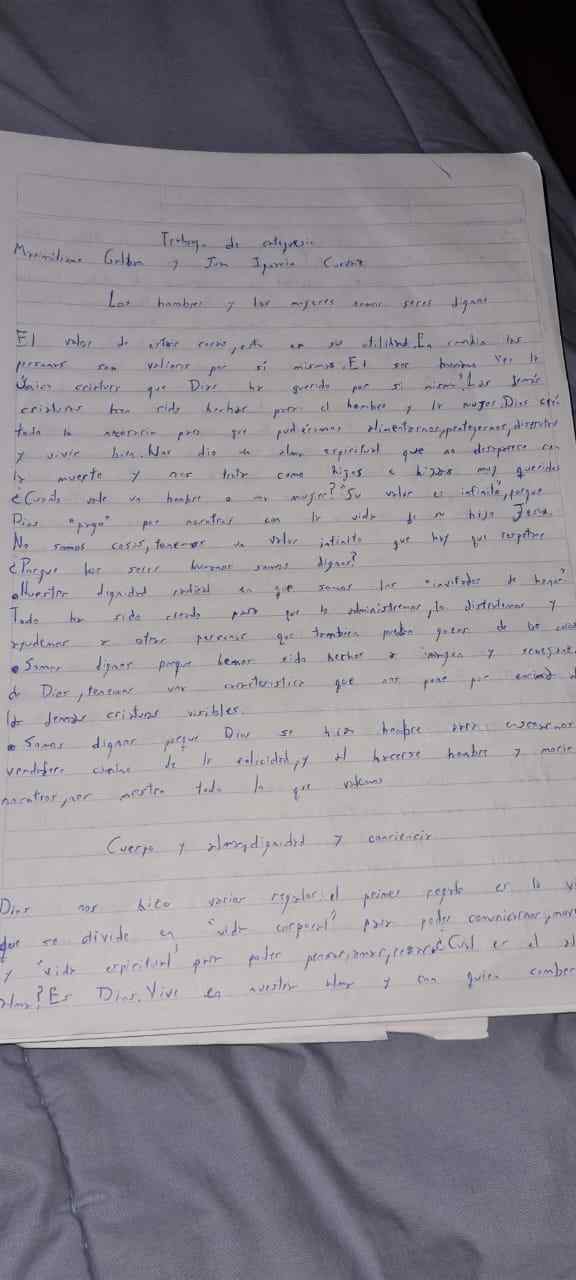 Trabajo de catequesis
Maximiliano y Juan Ignacio
Los hombres y las mujeres somos seres dignos
El valor de estas cosas, esta en su utilidad. En cambio las
personas son valiosas por sí mismas. El ser humano es la
única criatura que Dios ha querido por si misma. Las demás
criaturas han sido hechas para el hombre y la mujer. Dios
todo lo necesario para que pudieramos alimentarnos, protegernos, disfrutar
y vivir bien. Nos dio un alma espiritual que no desaparece con
la muerte y nos trata como hijos e hijas muy queridos
¿Cuanto vale un hombre o una mujer? Su valor es infinito, porque
Dios "pago" por nosotros con la vida de su hijo Jesus.
No somos cosas, tenemos un valor infinito que hay que respetar
¿Porque los seres humanos somos dignos?
• Nuestra dignidad radica en que somos los "invitados de honor"
Todo ha sido creado para que lo administremos, lo disfrutemos y
ayudemos a otras personas que tambien puedan gozar de lo
• Somos dignos porque hemos sido hechos a imagen y semejanza
de Dios, tenemos una caracteristica que nos pone por encima
las demas criaturas visibles.
• Somos dignos porque Dios se hizo hombre para
camino de la felicidad, y al hacerse hombre y morir
nosotros, nos mostro todo lo que valemos
Cuerpo y alma, dignidad y conciencia
Dios nos hizo varios regalos: el primer regalo es la
que se divide en "vida corporal" para poder comunicarnos,
y "vida espiritual" para poder pensar, amar, ¿Cual es el
alma? Es Dios. Vive en nuestra alma y con quien